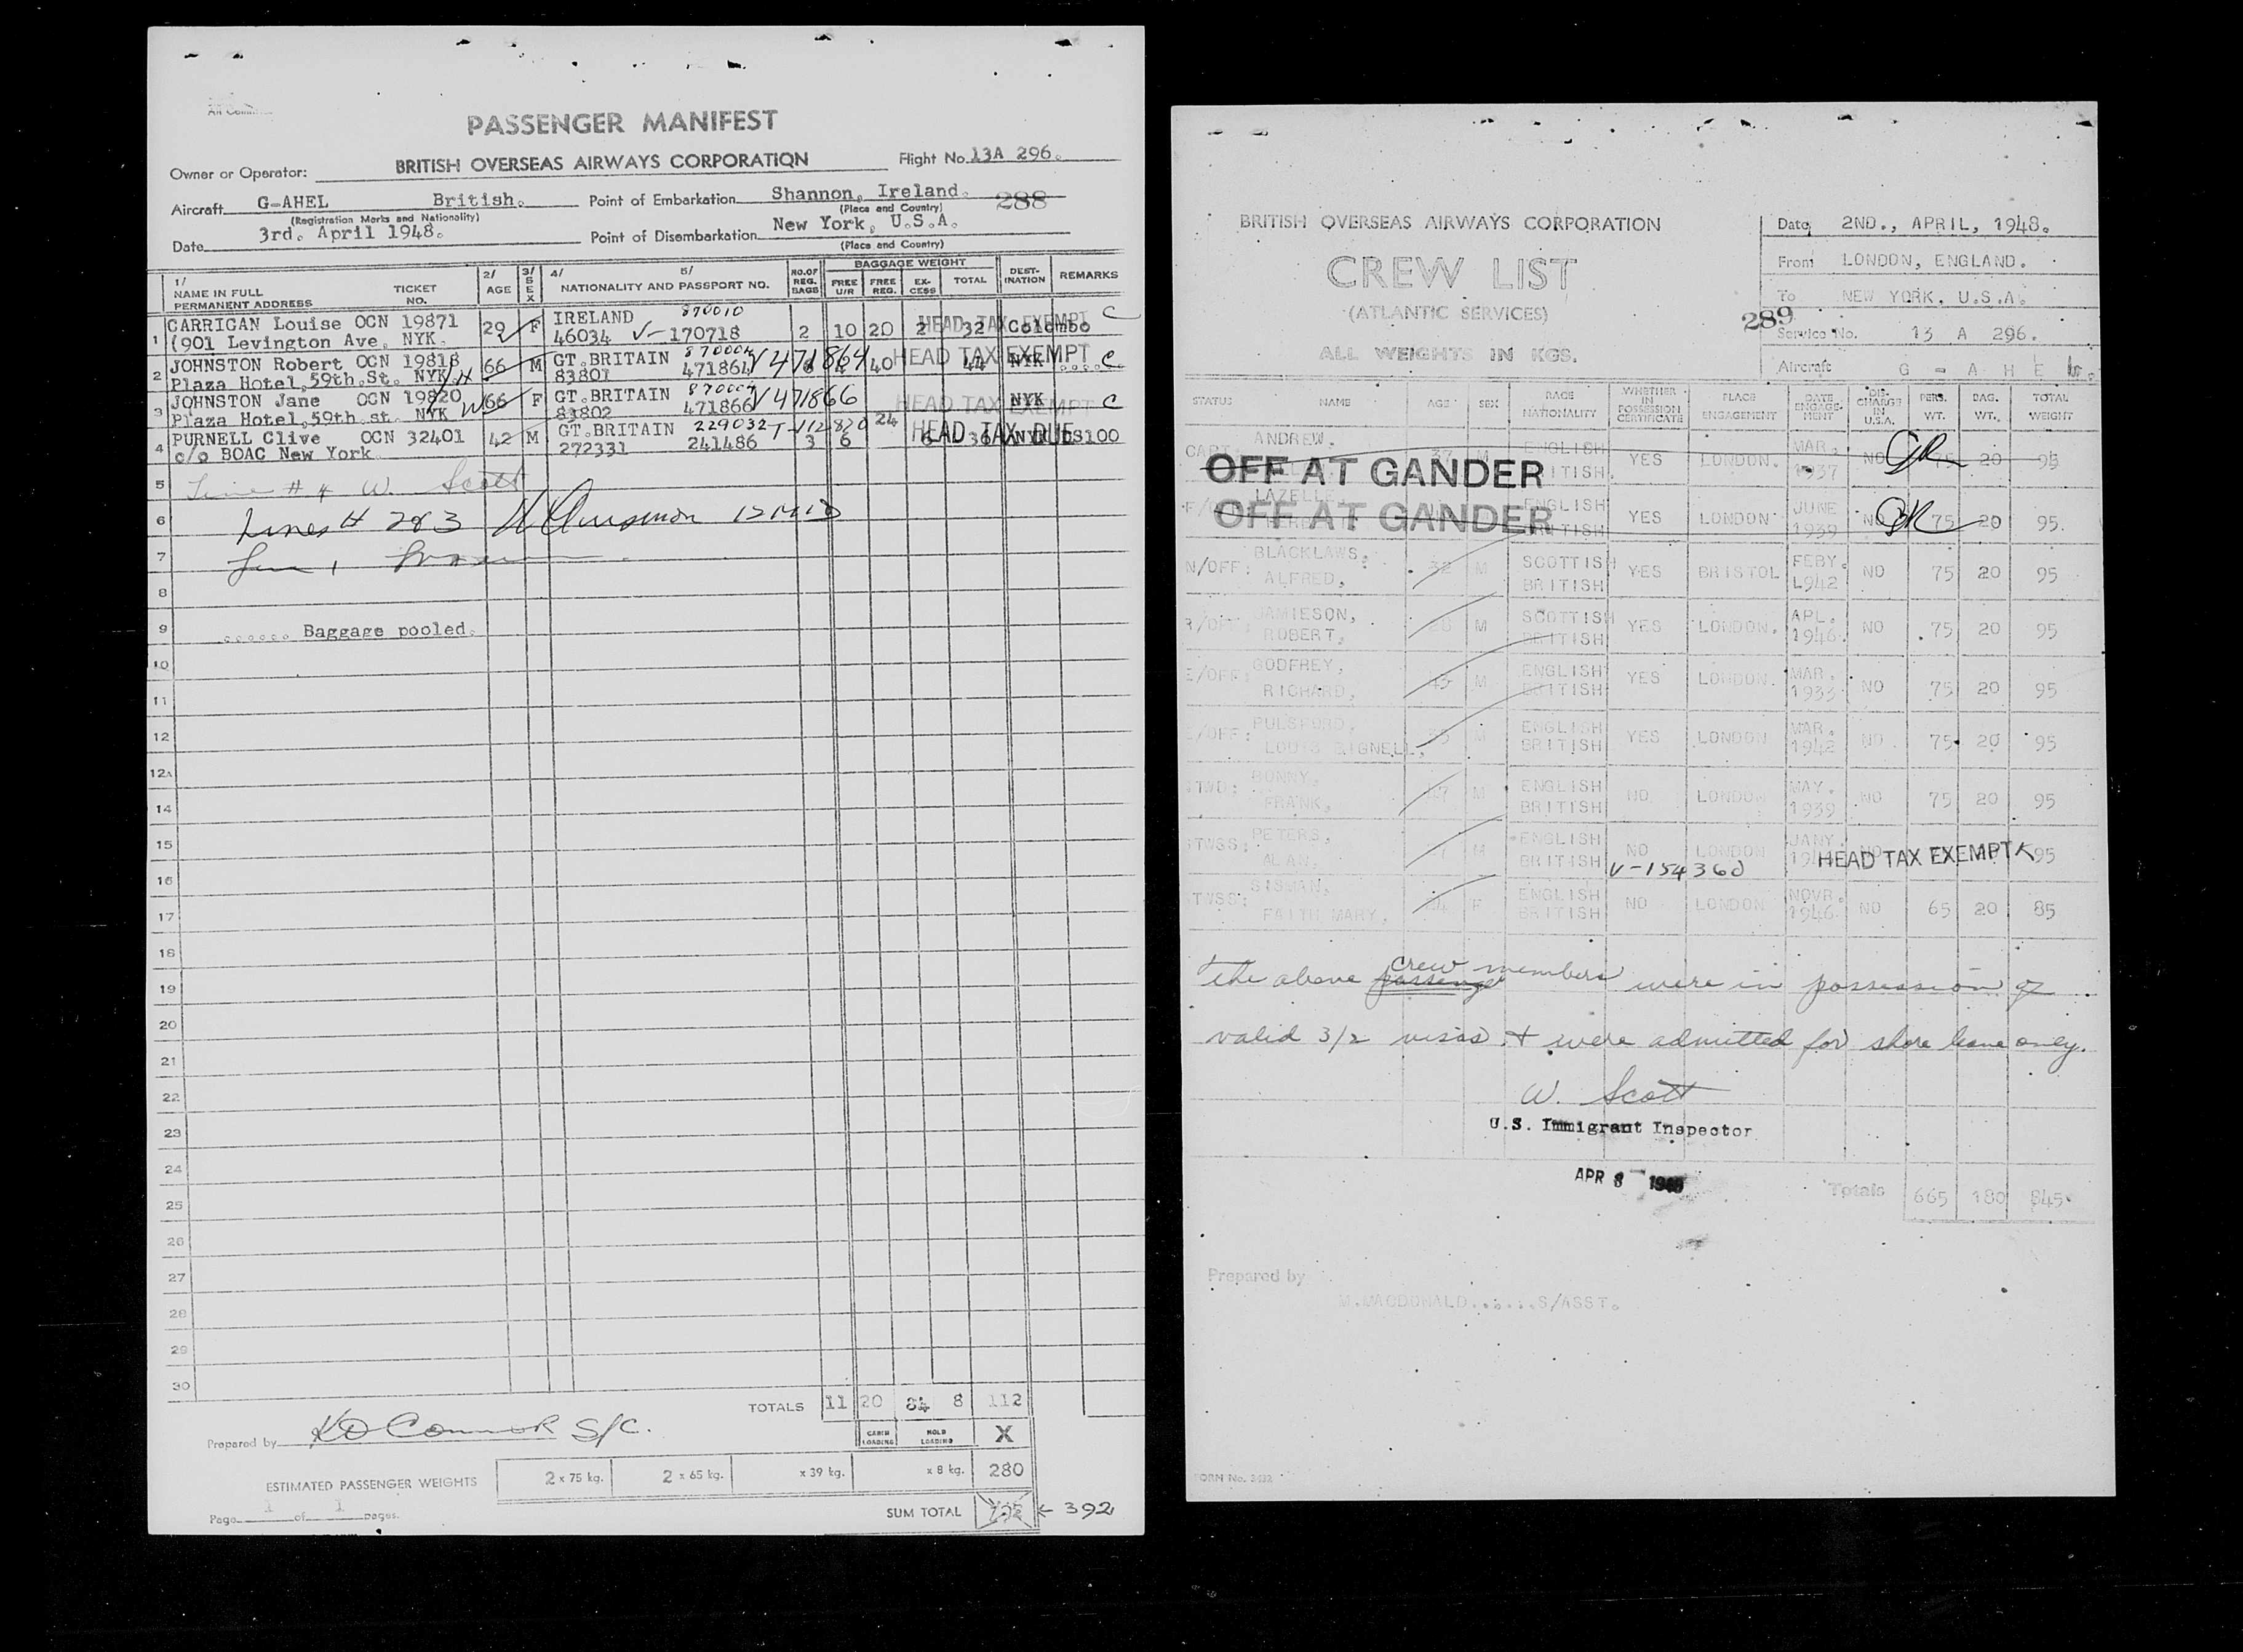 PASSENGER MANIFEST
Owner or Operator: BRITISH OVERSEAS AIRWAYS CORPORATION Flight No. 13A 296.
Aircraft G-AHEL British. Point of Embarkation Shannon, Ireland. 288
(Registration Marks and Nationality) (Place and Country)
Date 3rd. April 1948. Point of Disembarkation New York, U.S.A.
(Place and Country)
1/ NAME IN FULL PERMANENT ADDRESS TICKET NO. 2/ AGE 3/ SEX 4/ 5/ NATIONALITY AND PASSPORT NO. NO.OF REG. BAGS BAGGAGE WEIGHT FREE U/R FREE REG. EX-CESS TOTAL DEST-INATION REMARKS
1 CARRIGAN Louise OCN 19871 29 F IRELAND 870010
(901 Levington Ave. NYK. 46034 V-170718 2 10 20 2 32 Colombo HEAD TAX EXEMPT C
2 JOHNSTON Robert OCN 19818 66 M GT.BRITAIN V 471864 HEAD TAX EXEMPT
Plaza Hotel,59th.St. NYK 83801 471864 40 44 NYK ..... C
3 JOHNSTON Jane OCN 19820 66 F GT.BRITAIN V 471866 NYK
Plaza Hotel,59th.st. NYK 83802 471866 HEAD TAX EXEMPT C
4 PURNELL Clive OCN 32401 42 M GT.BRITAIN 229032 24 HEAD TAX DUE
c/o BOAC New York 272331 241486 3 6 6 36 NYK
5 Line # 4 W. Scott
6 Lines # 2&3
7
8
9 ...... Baggage pooled.
10
11
12
12A
14
15
16
17
18
19
20
21
22
23
24
25
26
27
28
29
30
TOTALS 11 20 84 8 112
Prepared by K O Connor S/C. CABIN LOADING HOLD LOADING X
ESTIMATED PASSENGER WEIGHTS 2 x 75 kg. 2 x 65 kg. x 39 kg. x 8 kg. 280
Page 1 of 1 pages. SUM TOTAL ← 392
BRITISH OVERSEAS AIRWAYS CORPORATION Date 2ND., APRIL, 1948.
CREW LIST From LONDON, ENGLAND.
(ATLANTIC SERVICES) To NEW YORK, U.S.A.
289 Service No. 13 A 296.
ALL WEIGHTS IN KGS. Aircraft G - A H E L.
STATUS NAME AGE SEX RACE NATIONALITY WHETHER IN POSSESSION CERTIFICATE PLACE ENGAGEMENT DATE ENGAGE-MENT DIS-CHARGE IN U.S.A. PERS. WT. BAG. WT. TOTAL WEIGHT
CAPT. ANDREW, 37 M ENGLISH BRITISH. YES LONDON. MAR. 1937 NO 75 20 95
OFF AT GANDER
F/ LAZELLE, ENGLISH BRITISH YES LONDON JUNE 1939 NO 75 20 95.
OFF AT GANDER
N/OFF: BLACKLAWS, ALFRED, 32 M SCOTTISH BRITISH YES BRISTOL FEBY. 1942 NO 75 20 95
R/OFF: JAMIESON, ROBERT, 28 M SCOTTISH BRITISH YES LONDON. APL. 1946. NO 75 20 95
E/OFF: GODFREY, RICHARD, 43 M ENGLISH BRITISH YES LONDON. MAR. 1933 NO 75 20 95
E/OFF: PULSFORD, LOUIS BIGNELL, M ENGLISH BRITISH YES LONDON MAR. 1942 NO. 75 20 95
STWD: BUNNY, FRANK, M ENGLISH BRITISH NO LONDON MAY. 1939 NO 75 20 95
STWSS: PETERS, ALAN, M ENGLISH BRITISH NO LONDON JANY. 95
V-154360 HEAD TAX EXEMPT
STWSS: SISMAN, FAITH MARY, F ENGLISH BRITISH NO LONDON NOVR. 1946. NO 65 20 85
The above passenge crew members were in possession of
valid 3/2 visas & were admitted for shore leave only.
W. Scott
U.S. Immigrant Inspector
APR 3 1948
Totals 665 180 845
Prepared by
M.MACDONALD......S/ASST.
FORM No. 2432